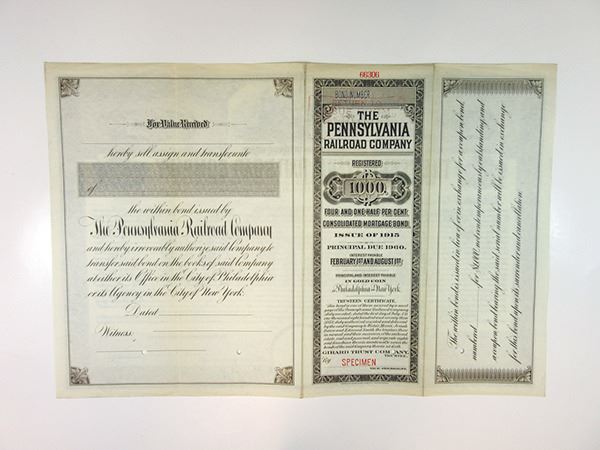 For Value Received
hereby sell, assign and transfer unto
of
the within bond issued by
The Pennsylvania Railroad Company
and hereby irrevocably authorize said Company to
transfer said bond on the books of said Company
at either its Office in the City of Philadelphia
or its Agency in the City of New York.
Dated
Witness:
66306
BOND NUMBER
THE
PENNSYLVANIA
RAILROAD COMPANY
REGISTERED
1000
FOUR AND ONE-HALF PER CENT.
CONSOLIDATED MORTGAGE BOND
ISSUE OF 1915
PRINCIPAL DUE 1960.
INTEREST PAYABLE
FEBRUARY 1ST AND AUGUST 1ST
PRINCIPAL AND INTEREST PAYABLE
IN GOLD COIN
in Philadelphia or New York.
TRUSTEE'S CERTIFICATE.
GIRARD TRUST COMPANY,
TRUSTEE,
By
SPECIMEN
VICE PRESIDENT.
The within bond is issued in lieu of or in exchange for a coupon bond,
numbered for $1,000, not contemporaneously outstanding and
a coupon bond bearing the said serial number will be issued in exchange
for this bond upon its surrender and cancellation.